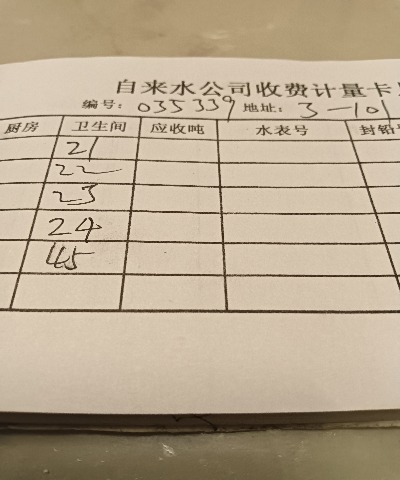 自来水公司收费计量卡
编号: 035339 地址: 3-101
厨房 卫生间 应收吨 水表号 封铅
21
22
23
24
45